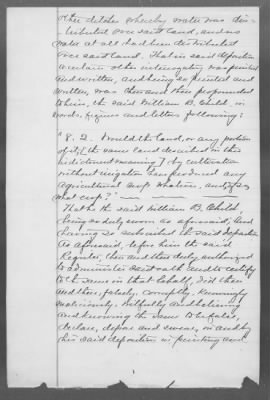 other ditches whereby water was dis-
tributed over said land, and no
water at all had been distributed
over said land. That in said deposition
a certain other interrogatory was printed
and written, and being so printed and
written, was then and there propounded
to him, the said William B. Child, in
words, figures and letters following:
"8. Q. Would the land, or any portion
of it [the same land described in this
indictment meaning] by cultivation
without irrigation have produced any
agricultural crop whatever, and if so,
what crop?"
That he the said William B. Child,
being so duly sworn as aforesaid, and
having so subscribed the said deposition
as aforesaid, before him the said
Register, then and there duly authorized
to administer said oath and to certify
to the same in that behalf, did then
and there, falsely, corruptly, knowingly
maliciously, wilfully and believing
and knowing the same to be false,
declare, depose and swear, in and by
his said deposition in printing and